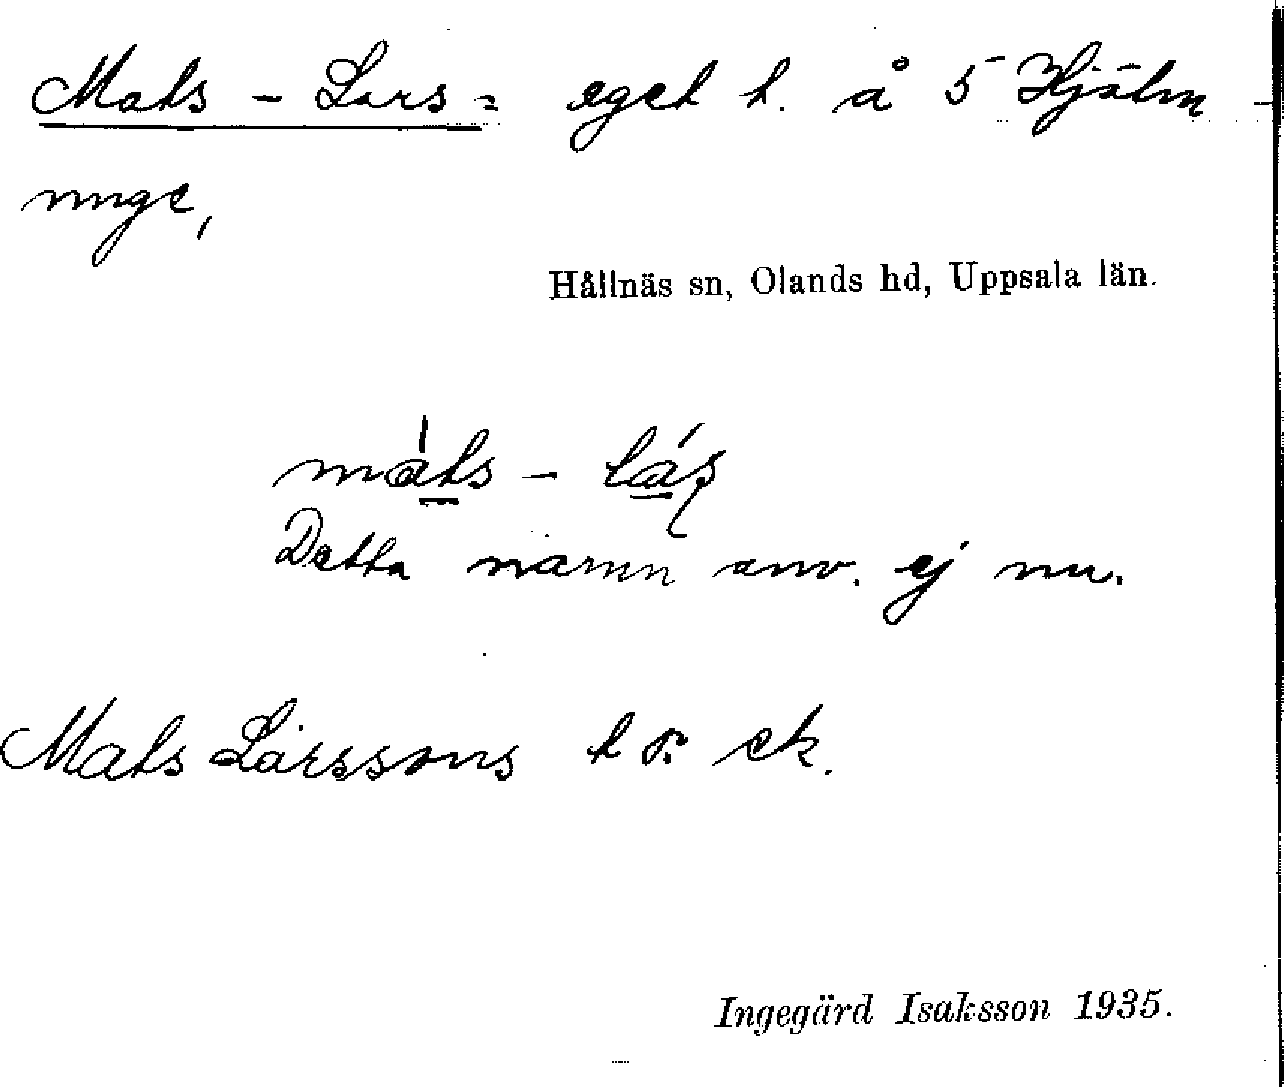 Mats - Lars = eget h. å 5 Hjälm -
unge,
Hållnäs sn, Olands hd, Uppsala län.
màts - láș
Detta namn anv. ej nu.
Mats Larssons h r. ek.
Ingegärd Isaksson 1935.